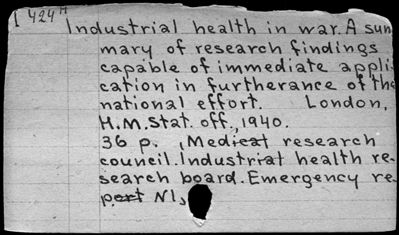 I 424H
Industrial health in war. A sum
mary of research findings
capable of immediate appli
cation in furtherance of the
national effort. London,
H.M. Stat. off., 1940.
36 p. , Medical research
council. Industrial health re-
search board. Emergency re-
port N1,